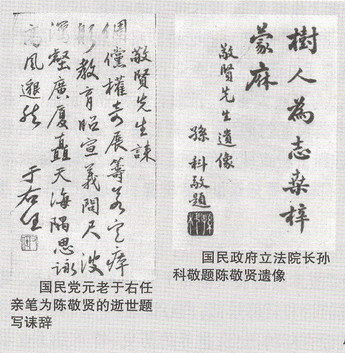 敬賢先生誄
倜儻權奇展籌瘁
躬教育昭宣義問尺波
壑廣厦矗天海隅思詠
高風邈然
于右任
国民党元老于右任
亲笔为陈敬贤的逝世题
写诔辞
樹人為志桑梓
蒙庥
敬賢先生遺像
孫科敬題
国民政府立法院长孙
科敬题陈敬贤遗像